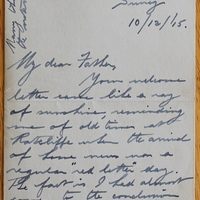 Surrey
10/12/15.
My dear Father,
Your welcome
letter came like a ray
of sunshine, reminding
me of old times
Ratcliffe when the arrival
of home news was a
regular "red letter" day.
The fact is I had almost
come to the conclusion